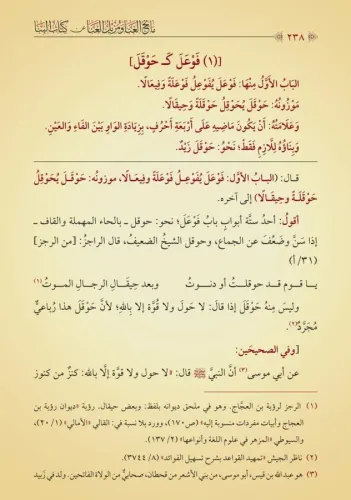 ٢٣٨ ماحي العنا ومزيل الغبا عن كتاب البنا
[(١) فَوْعَلَ كَـ حَوْقَلَ]
البَابُ الأَوَّلُ مِنْهَا: فَوْعَلَ يُفَوْعِلُ فَوْعَلَةً وفِيعَالًا.
مَوْزُونُهُ: حَوْقَلَ يُحَوْقِلُ حَوْقَلَةً وَحِيقَالًا.
وَعَلَامَتُهُ: أَنْ يَكُونَ مَاضِيهِ عَلَى أَرْبَعَةِ أَحْرُفٍ، بِزِيَادَةِ الوَاوِ بَيْنَ الفَاءِ وَالعَيْنِ.
وَبِنَاؤُهُ لِلَّازِمِ فَقَطْ؛ نَحْوُ: حَوْقَلَ زَيْدٌ.
قـال: (البـاب الأوَّل: فَوْعَلَ يُفَوْعِـلُ فَوْعَلَةً وفِيعَـالًا، موزونه: حَوْقَـلَ يُحَوْقِلُ
حَوْقَلَـةً وحِيقَـالًا) إلى آخره.
أقولُ: أحدُ ستَّة أبوابٍ بابُ فَوْعَلَ؛ نحو: حوقل ـ بالحاء المهملة والقاف ـ
إذا سَنَّ وضَعُفَ عن الجماع، وحوقل الشيخُ الضعيفُ، قال الراجزُ: [من الرجز]
(٣١/ أ)
يـا قـوم قـد حوقلـتُ أو دنـوتُ وبعد حِيقَـالِ الرجـالِ المـوتُ(١)
وليسَ مِنْهُ حَوْقَلَ إذا قالَ: لا حَولَ ولا قُوَّةَ إلا باللهِ؛ لأنَّ حَوْقَلَ هذا رُباعيٌّ
مُجَرَّدٌ(٢).
[وفي الصحيحَينِ:
عن أبي موسى(٣) أنَّ النبيَّ ﷺ قال: «لا حول ولا قوَّة إلَّا بالله: كنزٌ من كنوز
(١) الرجز لرؤبة بن العجَّاج. وهو في ملحق ديوانه بلفظ: وبعض حيقال. رؤبة بن العجاج «ديوان رؤبة بن
العجاج وأبيات مفردات منسوبة إليه» (ص ١٧٠)، وورد بلا نسبة في: القالي «الأمالي» (١/ ٢٠)،
والسيوطي «المزهر في علوم اللغة وأنواعها» (٢/ ١٣٧).
(٢) ناظر الجيش «تمهيد القواعد بشرح تسهيل الفوائد» (٨/ ٣٧٤٤).
(٣) هو عبد الله بن قيس، أبو موسى، من بني الأشعر من قحطان، صحابيٌّ من الولاة الفاتحين. ولد في زَبيد